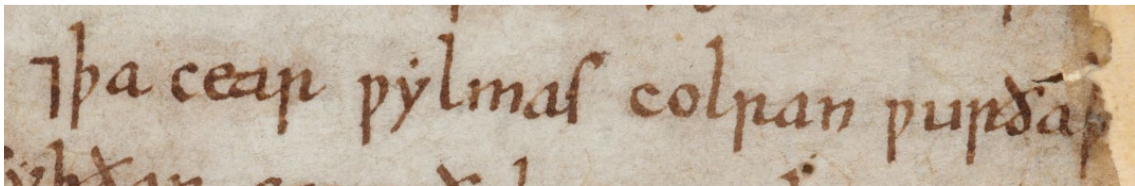 ⁊þa cear ƿylmas colran ƿurðaþ